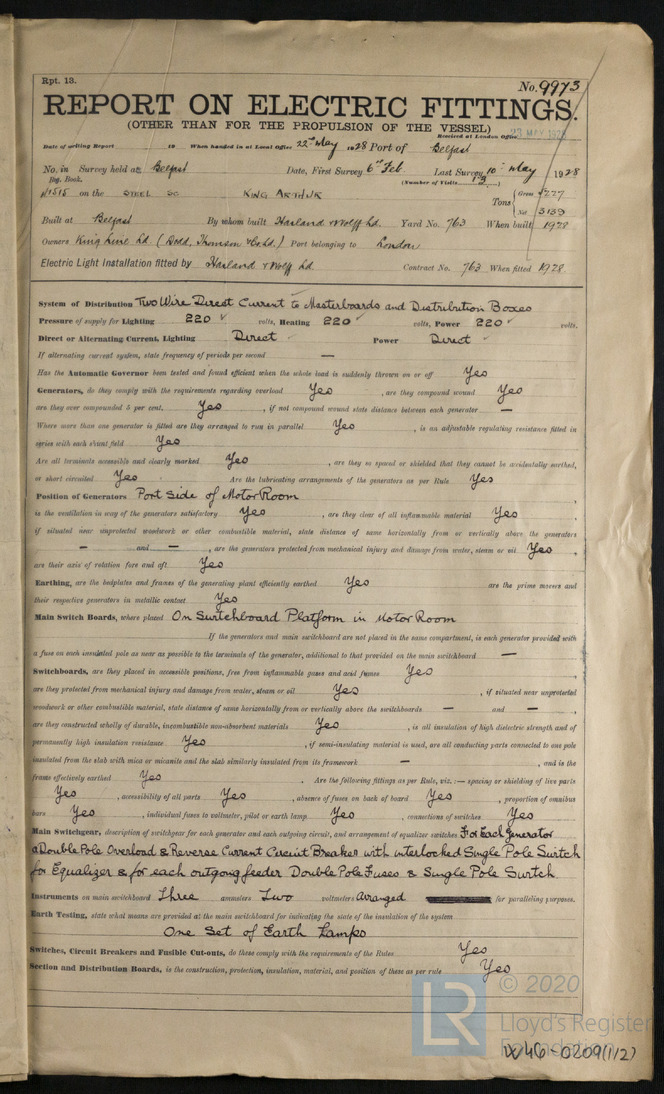 Rpt. 13.
No. 9973
REPORT ON ELECTRIC FITTINGS.
(OTHER THAN FOR THE PROPULSION OF THE VESSEL)
Received at London Office 23 MAY 1928
Date of writing Report 19 When handed in at Local Office 22nd May 1928 Port of Belfast
No. in Survey held at Belfast Date, First Survey 6th Feb Last Survey 10th May 1928
Reg. Book. (Number of Visits 13)
on the STEEL SC KING ARTHUR Tons { Gross 5227
Net 3139
Built at Belfast By whom built Harland & Wolff Ld. Yard No. 763 When built 1928
Owners King Line Ld. (Dodd, Thomson & Co. Ld.) Port belonging to London
Electric Light Installation fitted by Harland & Wolff Ld. Contract No. 763 When fitted 1928
System of Distribution Two Wire Direct Current to Masterboards and Distribution Boxes
Pressure of supply for Lighting 220 volts, Heating 220 volts, Power 220 volts.
Direct or Alternating Current, Lighting Direct Power Direct
If alternating current system, state frequency of periods per second —
Has the Automatic Governor been tested and found efficient when the whole load is suddenly thrown on or off Yes
Generators, do they comply with the requirements regarding overload Yes , are they compound wound Yes
are they over compounded 5 per cent. Yes , if not compound wound state distance between each generator —
Where more than one generator is fitted are they arranged to run in parallel Yes , is an adjustable regulating resistance fitted in
series with each shunt field Yes
Are all terminals accessible and clearly marked Yes , are they so spaced or shielded that they cannot be accidentally earthed,
or short circuited Yes Are the lubricating arrangements of the generators as per Rule Yes
Position of Generators Port Side of Motor Room
is the ventilation in way of the generators satisfactory Yes , are they clear of all inflammable material Yes ,
if situated near unprotected woodwork or other combustible material, state distance of same horizontally from or vertically above the generators
— and — , are the generators protected from mechanical injury and damage from water, steam or oil Yes ,
are their axis of rotation fore and aft Yes
Earthing, are the bedplates and frames of the generating plant efficiently earthed Yes are the prime movers and
their respective generators in metallic contact Yes
Main Switch Boards, where placed On Switchboard Platform in Motor Room
If the generators and main switchboard are not placed in the same compartment, is each generator provided with
a fuse on each insulated pole as near as possible to the terminals of the generator, additional to that provided on the main switchboard —
Switchboards, are they placed in accessible positions, free from inflammable gases and acid fumes Yes ,
are they protected from mechanical injury and damage from water, steam or oil Yes , if situated near unprotected
woodwork or other combustible material, state distance of same horizontally from or vertically above the switchboards — and — ,
are they constructed wholly of durable, incombustible non-absorbent materials Yes , is all insulation of high dielectric strength and of
permanently high insulation resistance Yes , if semi-insulating material is used, are all conducting parts connected to one pole
insulated from the slab with mica or micanite and the slab similarly insulated from its framework — , and is the
frame effectively earthed Yes . Are the following fittings as per Rule, viz.:— spacing or shielding of live parts
Yes , accessibility of all parts Yes , absence of fuses on back of board Yes , proportion of omnibus
bars Yes , individual fuses to voltmeter, pilot or earth lamp Yes , connections of switches Yes
Main Switchgear, description of switchgear for each generator and each outgoing circuit, and arrangement of equalizer switches For Each Generator
a Double Pole Overload & Reverse Current Circuit Breaker with interlocked Single Pole Switch
for Equalizer & for each outgong feeder Double Pole Fuses & Single Pole Switch.
Instruments on main switchboard Three ammeters Two voltmeters Arranged for paralleling purposes.
Earth Testing, state what means are provided at the main switchboard for indicating the state of the insulation of the system
One Set of Earth Lamps
Switches, Circuit Breakers and Fusible Cut-outs, do these comply with the requirements of the Rules Yes
Section and Distribution Boards, is the construction, protection, insulation, material, and position of these as per rule Yes
© 2020
LR
Lloyd's Register
Foundation
W46-0209(1/2)